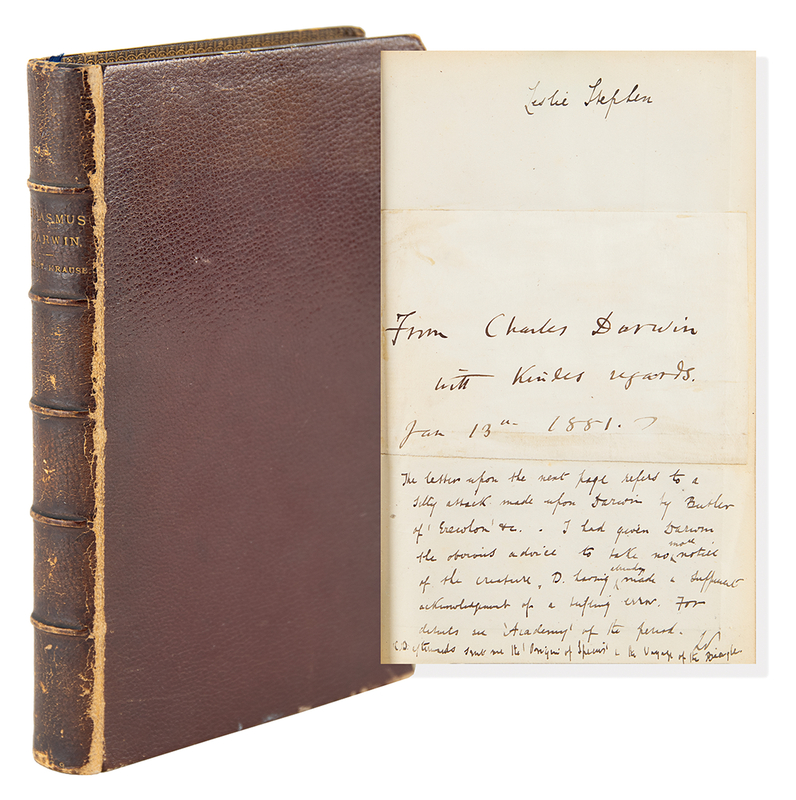 ERASMUS
DARWIN.
KRAUSE.
Leslie Stephen
From Charles Darwin
with kindest regards.
Jan 13th 1881.
The letter upon the next page refers to a
silly attack made upon Darwin by Butler
of 'Erewhon' &c. I had given Darwin
the obvious advice to take no more notice
of the creature, D. having already made a sufficient
acknowledgment of a trifling error. For
details see 'Academy' of the period.
LS
C.D. afterwards sent me the 'Origin of Species' & the Voyage of the Beagle